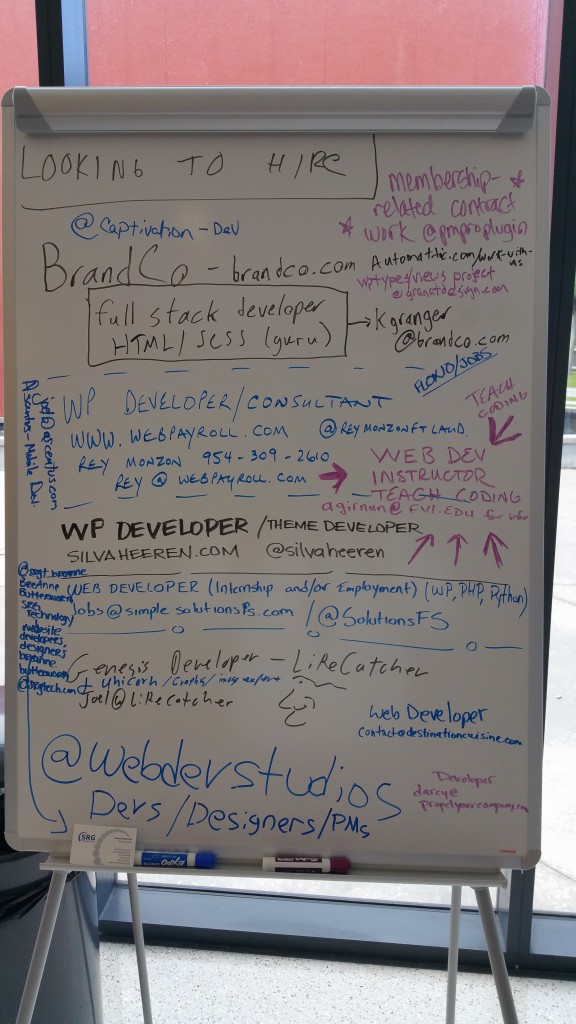 LOOKING TO HIRE
@Captivation-Dev
membership-
related contract
work @pmproplugin
BrandCo - brandco.com
Automattic.com/work-with-us
wptypes/views project
full stack developer
HTML/SCSS (guru)
Kgranger
@brandco.com
FLOND/JOBS
WP DEVELOPER/CONSULTANT
WWW.WEBPAYROLL.COM @REYMONZONFTLAUD.
REY MONZON 954-309-2610
REY@WEBPAYROLL.COM
TEACH
CODING
WEB DEV
INSTRUCTOR
TEACH CODING
@FVI.EDU for info
WP DEVELOPER/THEME DEVELOPER
SILVAHEEREN.COM @silvaheeren
WEB DEVELOPER (Internship and/or Employment) (WP, PHP, Python)
Jobs@simplesolutionsfs.com /@SolutionsFS
BreAnne
Butterworth
SRG
Technology
website
developers,
designers
@srgtech.com
Genesis Developer - LiReCatcher
+ unicorn/Graphs/
Joel@LiReCatcher
Web Developer
contact@destinationcuisine.com
@webdevstudios
Devs/Designers/PMs
Developer
darcy@
propelyourcompany.com
SRG
EXPO